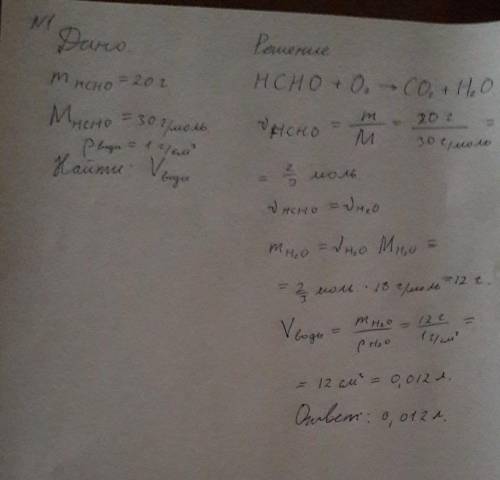 №1
Дано
m HCHO = 20 г
M HCHO = 30 г/моль
ρ воды = 1 г/см³
Найти: V воды
Решение
HCHO + O₂ → CO₂ + H₂O
ν HCHO = m/M = 20 г/30 г/моль =
= 2/3 моль.
ν HCHO = ν H₂O
m H₂O = ν H₂O M H₂O =
= 2/3 моль · 18 г/моль = 12 г.
V воды = m H₂O/ρ H₂O = 12 г/1 г/см³ =
= 12 см³ = 0,012 л.
Ответ: 0,012 л.